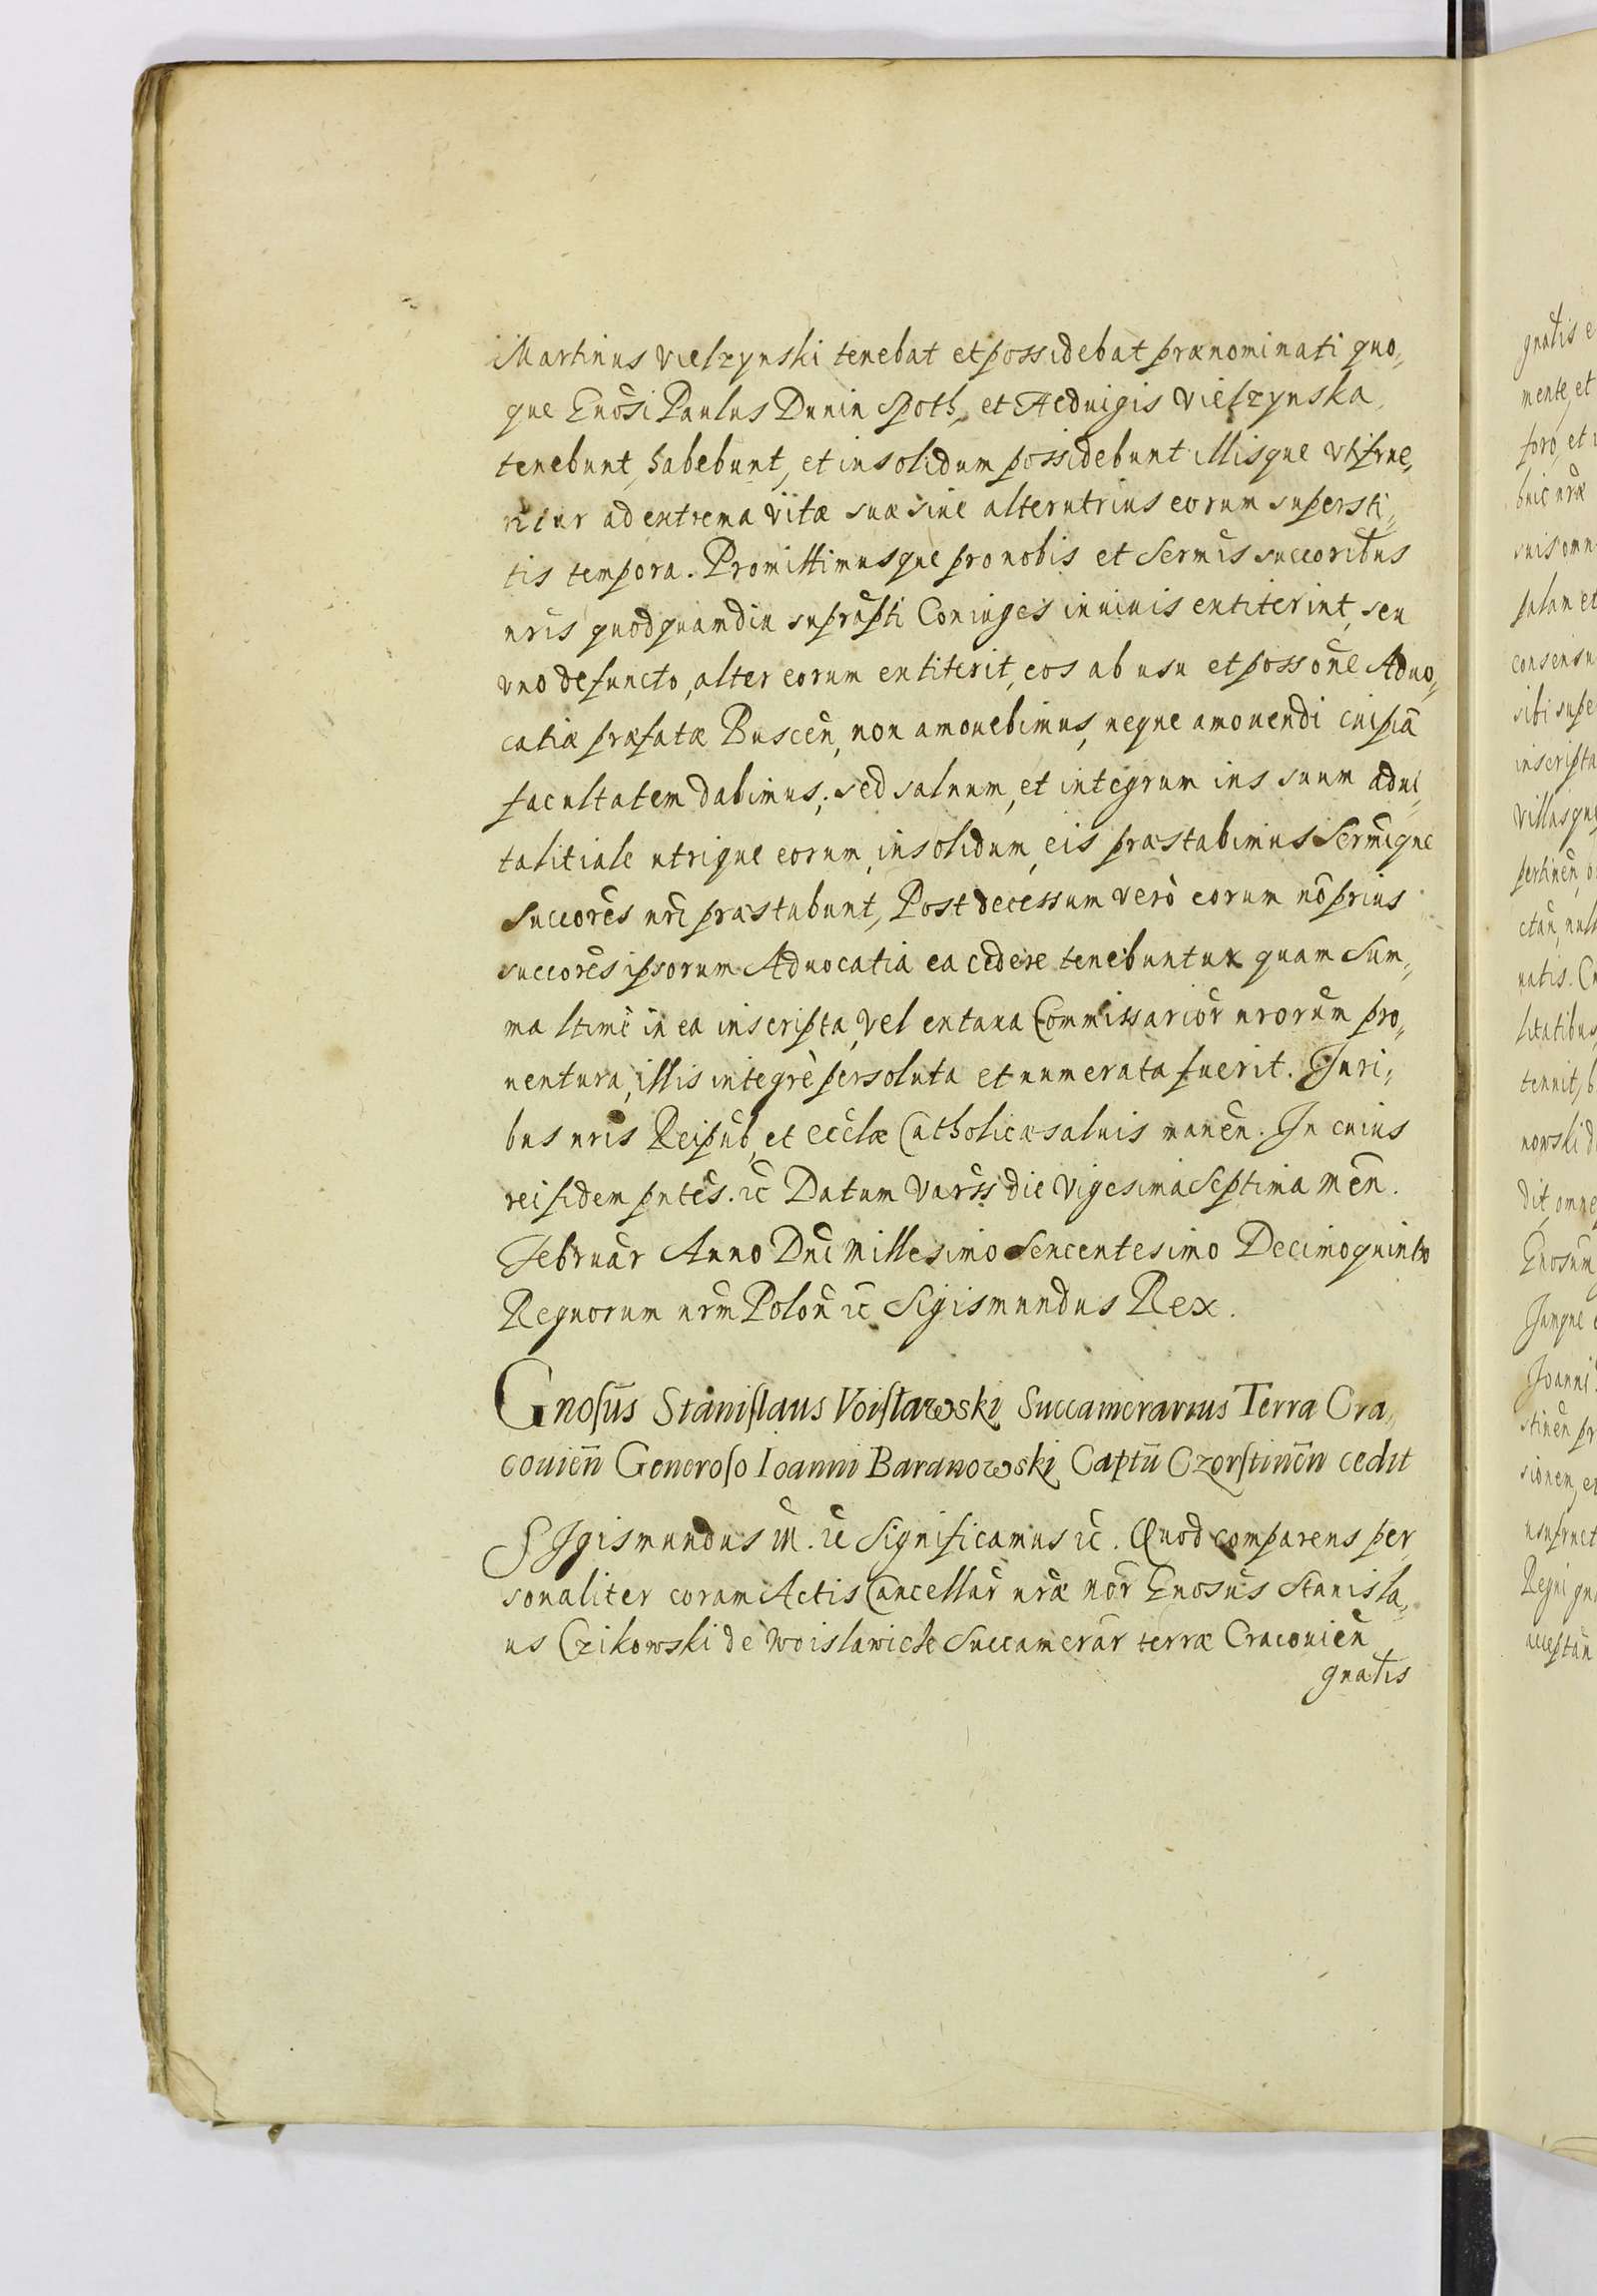 Martinus Vielzynski tenebat et possidebat prænominati quo,
que Gnosi Paulus Dunin Spoth, et Hedvigis Vielzynska,
tenebunt, habebunt, et in solidum possidebunt illisque Vtifrue,
ntur ad extrema Vitæ suæ siue alterutrius eorum supersti,
tis tempora. Promittimusque pro nobis et Sermis succoribus
nris quod quamdiu suprapti Coniuges in viuis extiterint, seu
vno defuncto, alter eorum extiterit, eos ab usu et possone Aduo,
catiæ præfatæ Buscen, non amouebimus, neque amouendi cuipiā
facultatem dabimus; sed saluum, et integrum ius suum adui,
talitiale utrique eorum, in solidum, eis præstabimus Sermique
Succores nri præstabunt, Post decessum verò eorum nō prius
succores ipsorum Aduocatia ea cedere tenebuntur quam Sum,
ma ltime in ea inscripta, vel ex taxa Commissarior nrorum pro,
uentura, illis integrè persoluta et numerata fuerit. Juri,
bus nris Reipub, et Ecclæ Catholicæ saluis manen. In cuius
rei fidem pntes. &c Datum Varss die Vigesima Septima Men.
Februar Anno Dni Millesimo Sexcentesimo Decimoquinto
Regnorum nrm Polon &c Sigismundus Rex.
Gnosus Stanislaus Voisławski Succamerarius Terra Cra,
couien Generoso Ioanni Baranowski Captu Czorstinen cedit
SIgismundus III. &c Significamus &c. Quod comparens per
sonaliter coram Actis Cancellar nræ nor Gnosus Stanisla,
us Czikowski de Woislawice Succamerar terræ Cracouien
gnatis
gnatis e
mente, et
foro, et
huic nræ
suis omn
palam et
consensu
sibi supe
inscripta
Villasque
pertinen, o
ctan, null
natis. C
litatibus
tenuit, b
nowski d
dit, omne
Gnosum
Jamque
Joanni
stinen pr
sionem, e
usufruct
Regni
acceptan